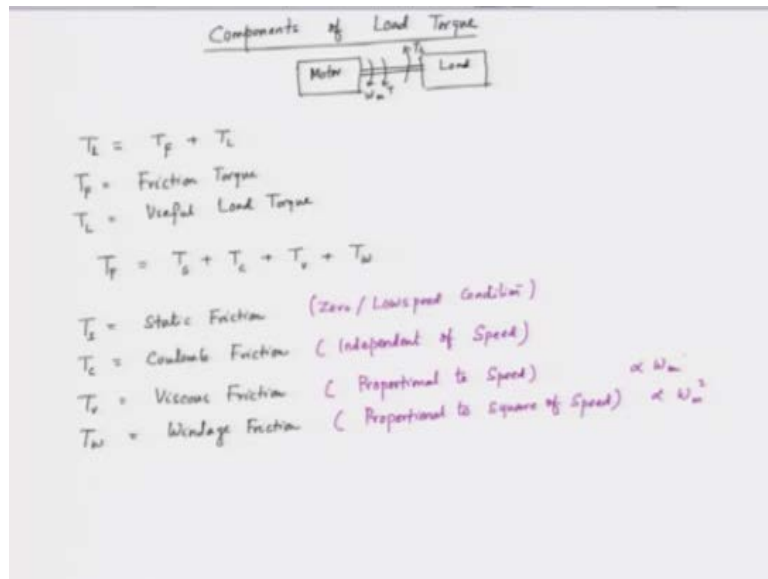 Components of Load Torque
Motor
Load
ωm T
Tl = TF + TL
TF = Friction Torque
TL = Useful Load Torque
TF = Ts + Tc + Tv + Tw
Ts = Static Friction (Zero / Low speed Condition)
Tc = Coulomb Friction ( Independent of Speed)
Tv = Viscous Friction ( Proportional to Speed) ∝ ωm
Tw = Windage Friction ( Proportional to Square of Speed) ∝ ωm²